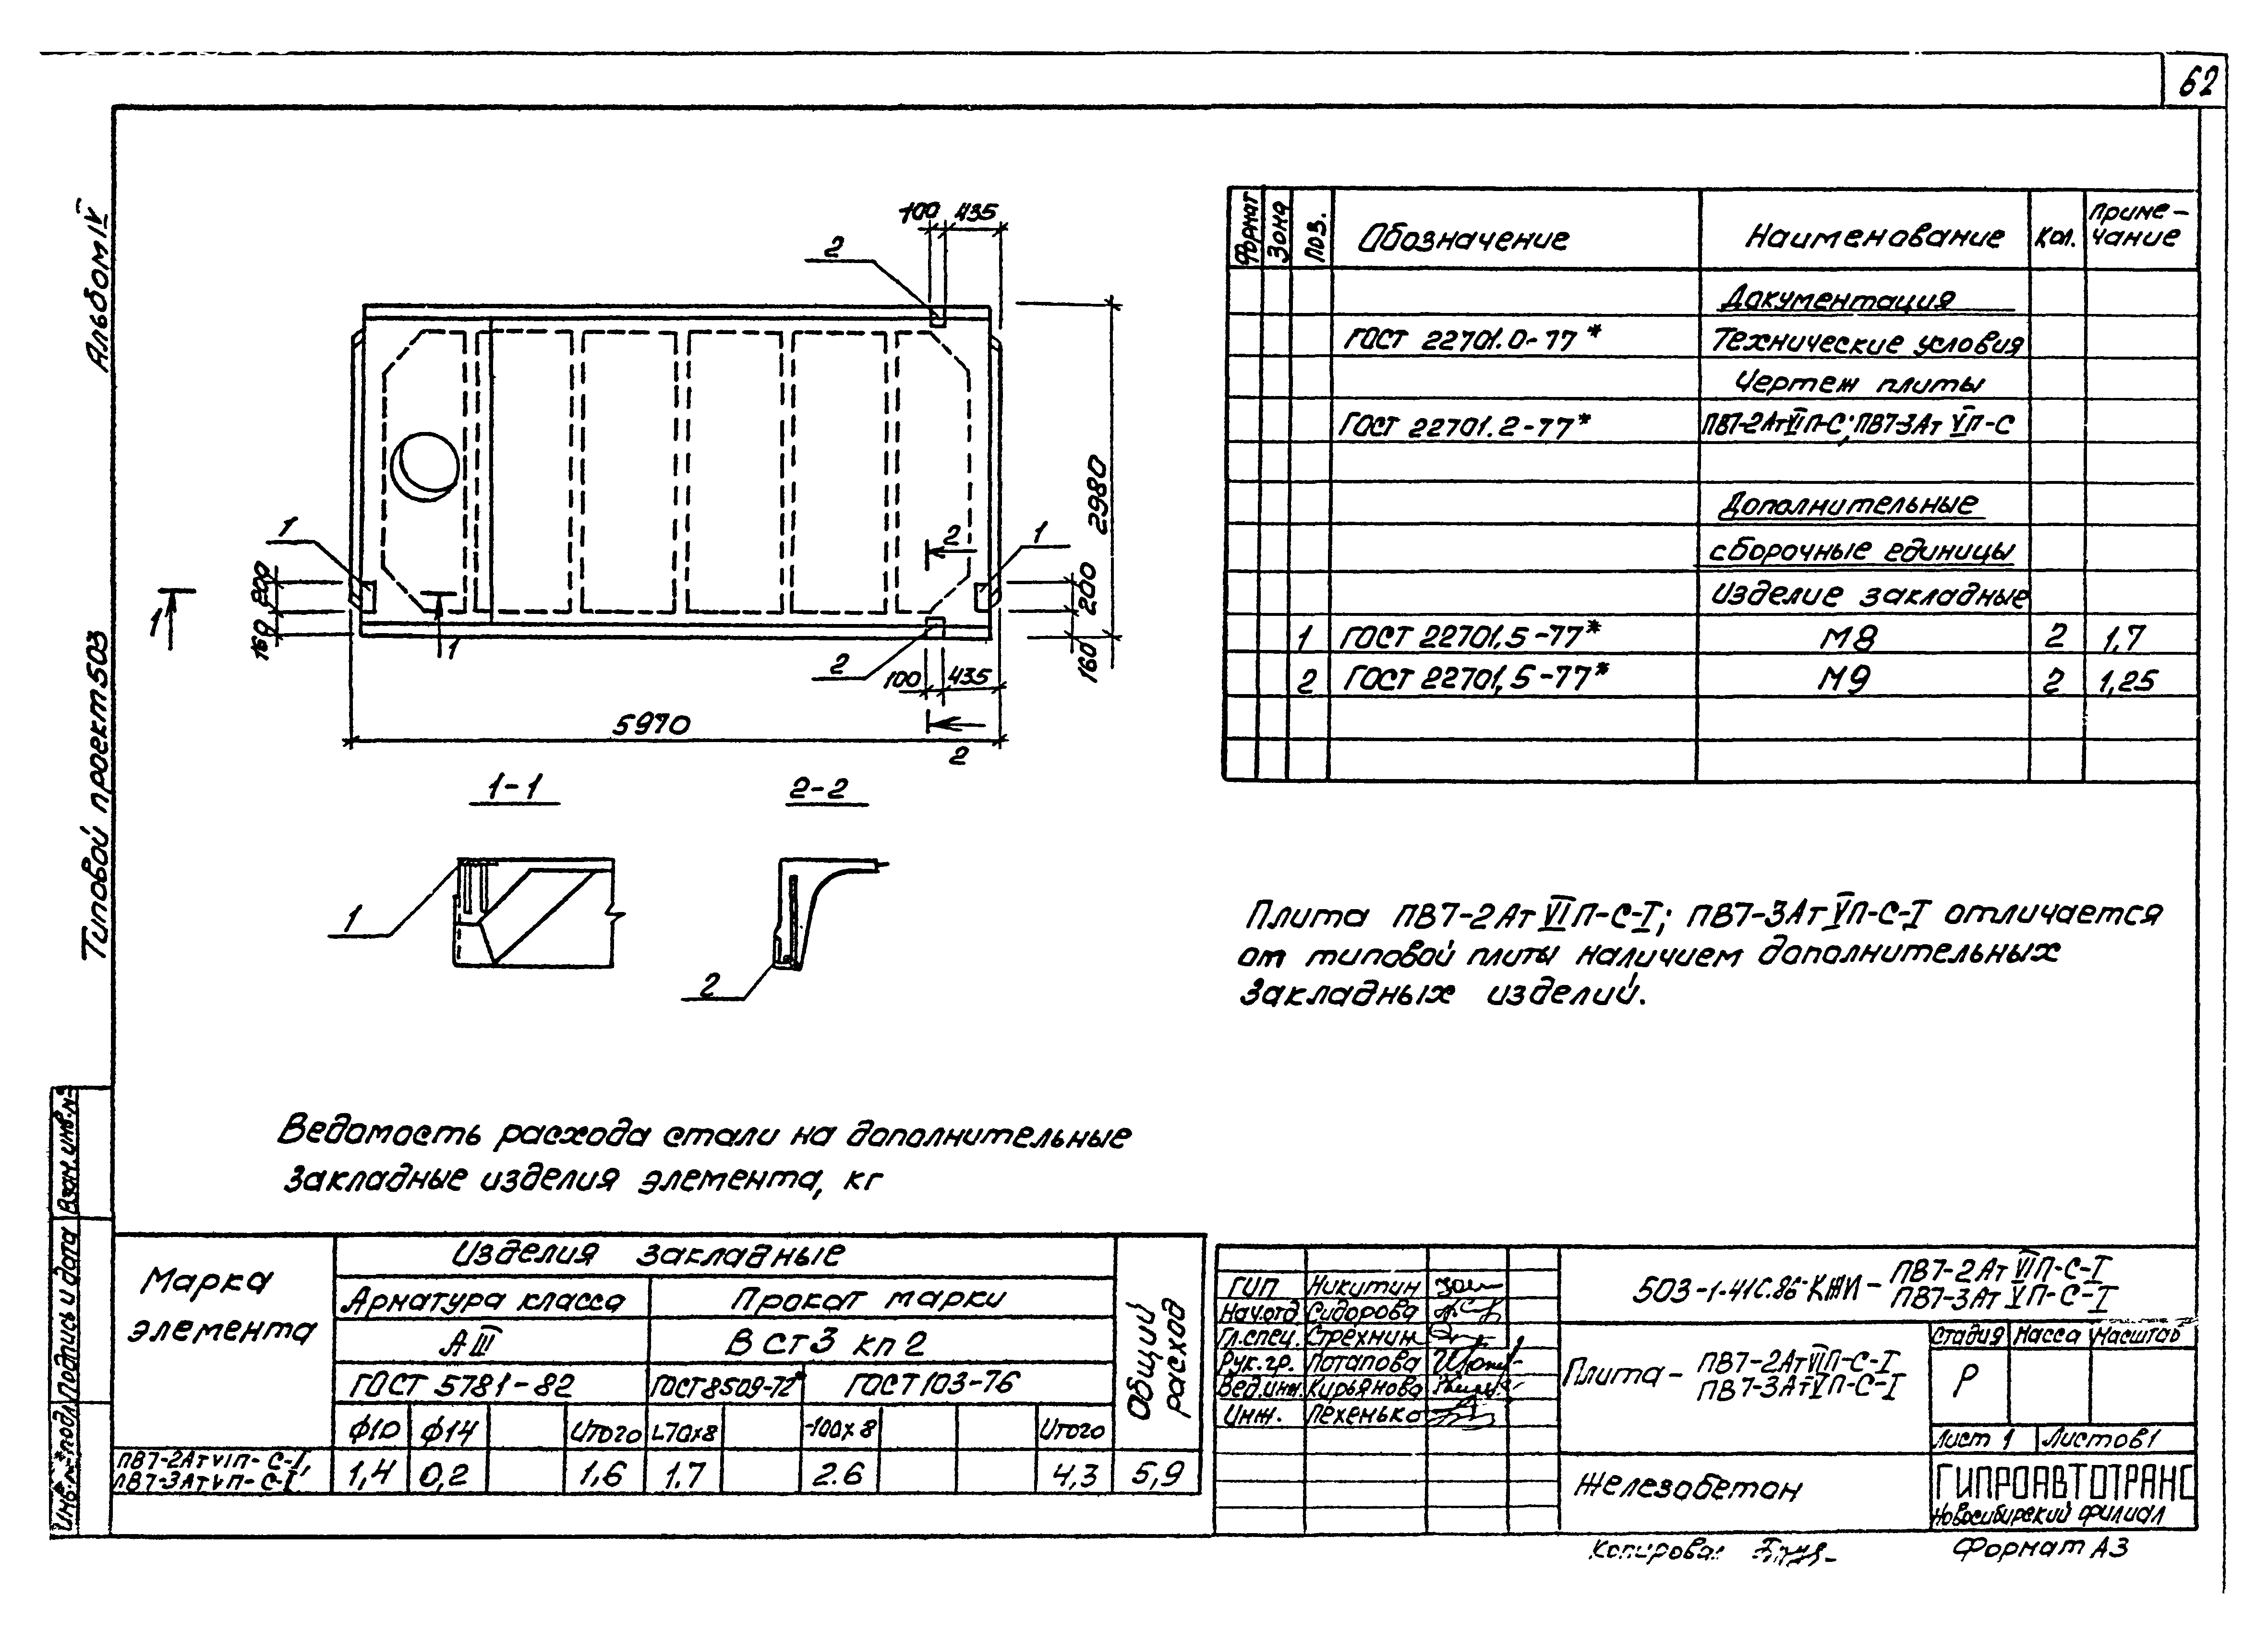 62
Альбом IV
Типовой проект 503
100 435
2
2980
1
200
160
1
1
2
1
200
160
2
100 435
5970
2
1-1
2-2
1
2
Формат Зона Поз. Обозначение Наименование Кол. Приме-
чание
Документация
ГОСТ 22701.0-77* Технические условия
Чертеж плиты
ГОСТ 22701.2-77* ПВ7-2АтVIП-С; ПВ7-3АтVП-С
Дополнительные
сборочные единицы
Изделие закладные
1 ГОСТ 22701,5-77* М8 2 1,7
2 ГОСТ 22701,5-77* М9 2 1,25
Плита ПВ7-2АтVIП-С-I; ПВ7-3АтVП-С-I отличается
от типовой плиты наличием дополнительных
закладных изделий.
Ведомость расхода стали на дополнительные
закладные изделия элемента, кг
Марка
элемента
Изделия закладные
Общий
расход
Арматура класса Прокат марки
АIII В Ст3 кп2
ГОСТ 5781-82 ГОСТ8509-72* ГОСТ103-76
ф10 ф14 Итого L70х8 -100х8 Итого
ПВ7-2АтVIП-С-I,
ПВ7-3АтVП-С-I 1,4 0,2 1,6 1.7 2.6 4,3 5,9
Взам.инв.№
Подпись и дата
Инв.№подл.
ГИП Никитин
Нач.отд Сидорова
Гл.спец. Стрехнин
Рук.гр. Потапова
Вед.инж. Кирьянова
Инж. Пехенько
503-1-41С.86-КЖИ- ПВ7-2АтVIП-С-I
ПВ7-3АтVП-С-I
Плита- ПВ7-2АтVIП-С-I
ПВ7-3АтVП-С-I
Стадия Масса Масштаб
Р
Лист 1 Листов 1
Железобетон
ГИПРОАВТОТРАНС
Новосибирский филиал
Копировал
Формат А3